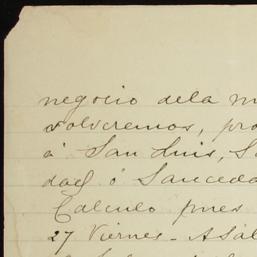 negocio dela m
volveremos, pro
á San Luis, S
dad ó Sauceda
Calculo pues
27 Viernes - A Sál